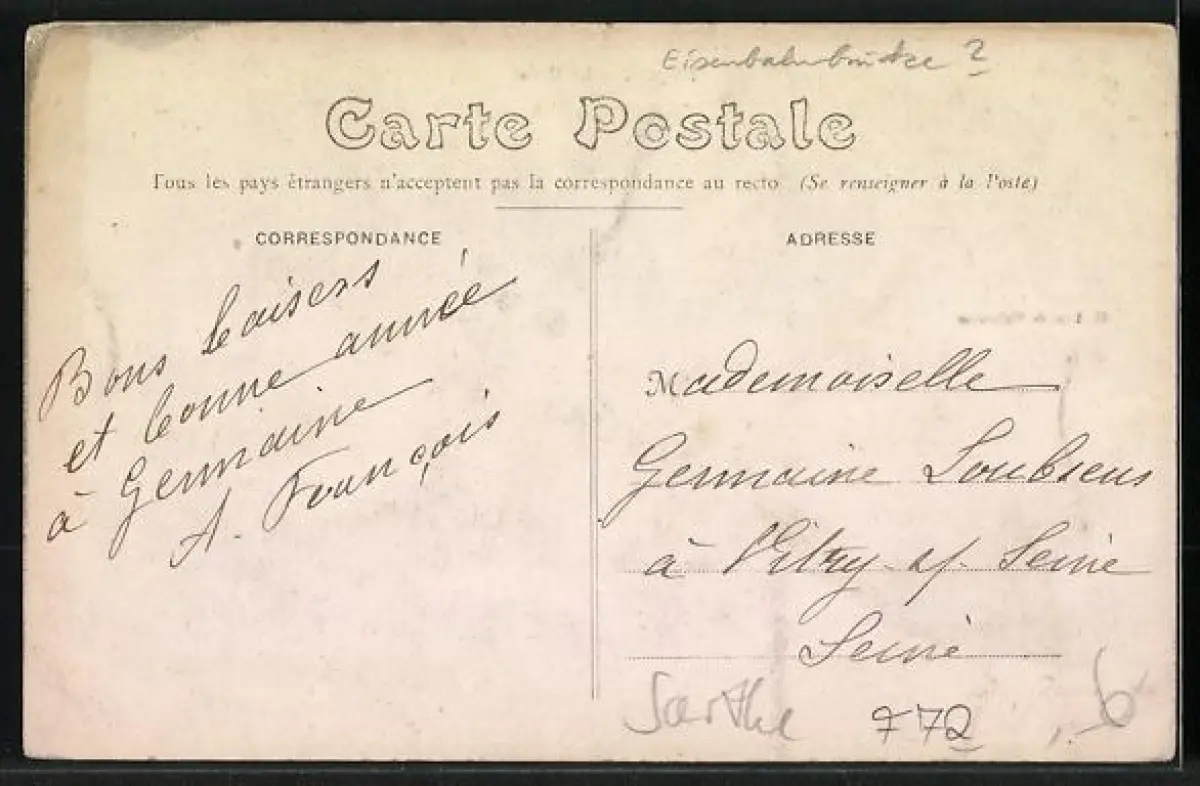 Eisenbahnbrücke ?
Carte Postale
Tous les pays étrangers n'acceptent pas la correspondance au recto (Se renseigner à la Poste)
CORRESPONDANCE
Bons baisers
et bonne année
à Germaine
A. François
ADRESSE
Mademoiselle
Germaine Soubsens
à Vitry s/. Seine
Seine
Sarthe
772